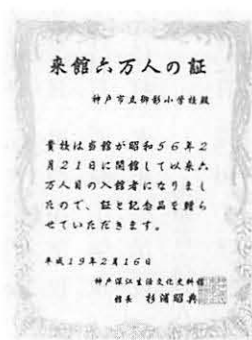 来館六万人の証
神戸市立御影小学校殿
貴校は当館が昭和56年2
月21日に開館して以来六
万人目の入館者になりまし
たので、証と記念品を贈ら
せていただきます。
平成19年2月16日
神戸深江生活文化史料館
館長 杉浦昭典